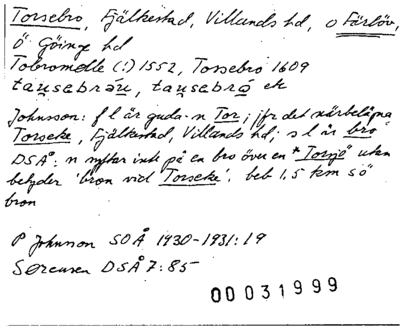 Torsebro, Fjälkestad, Villands hd, o Färlöv,
Ö Göinge hd
Tobromolle (:) 1552, Torssebro 1609
taụsebrǝ́u, taụsebrǫ́ ek
Johnsson: f l är guda-n Tor; jfr det närbelägna
Torseke, Fjälkestad, Villands hd; s l är bro
DSÅ: n syftar inte på en bro över en *Torsjö utan
betyder 'bron vid Torseke'. beb 1,5 km sö
bron
P Johnsson SOÅ 1930-1931:19
Sørensen DSÅ 7:85
00031999